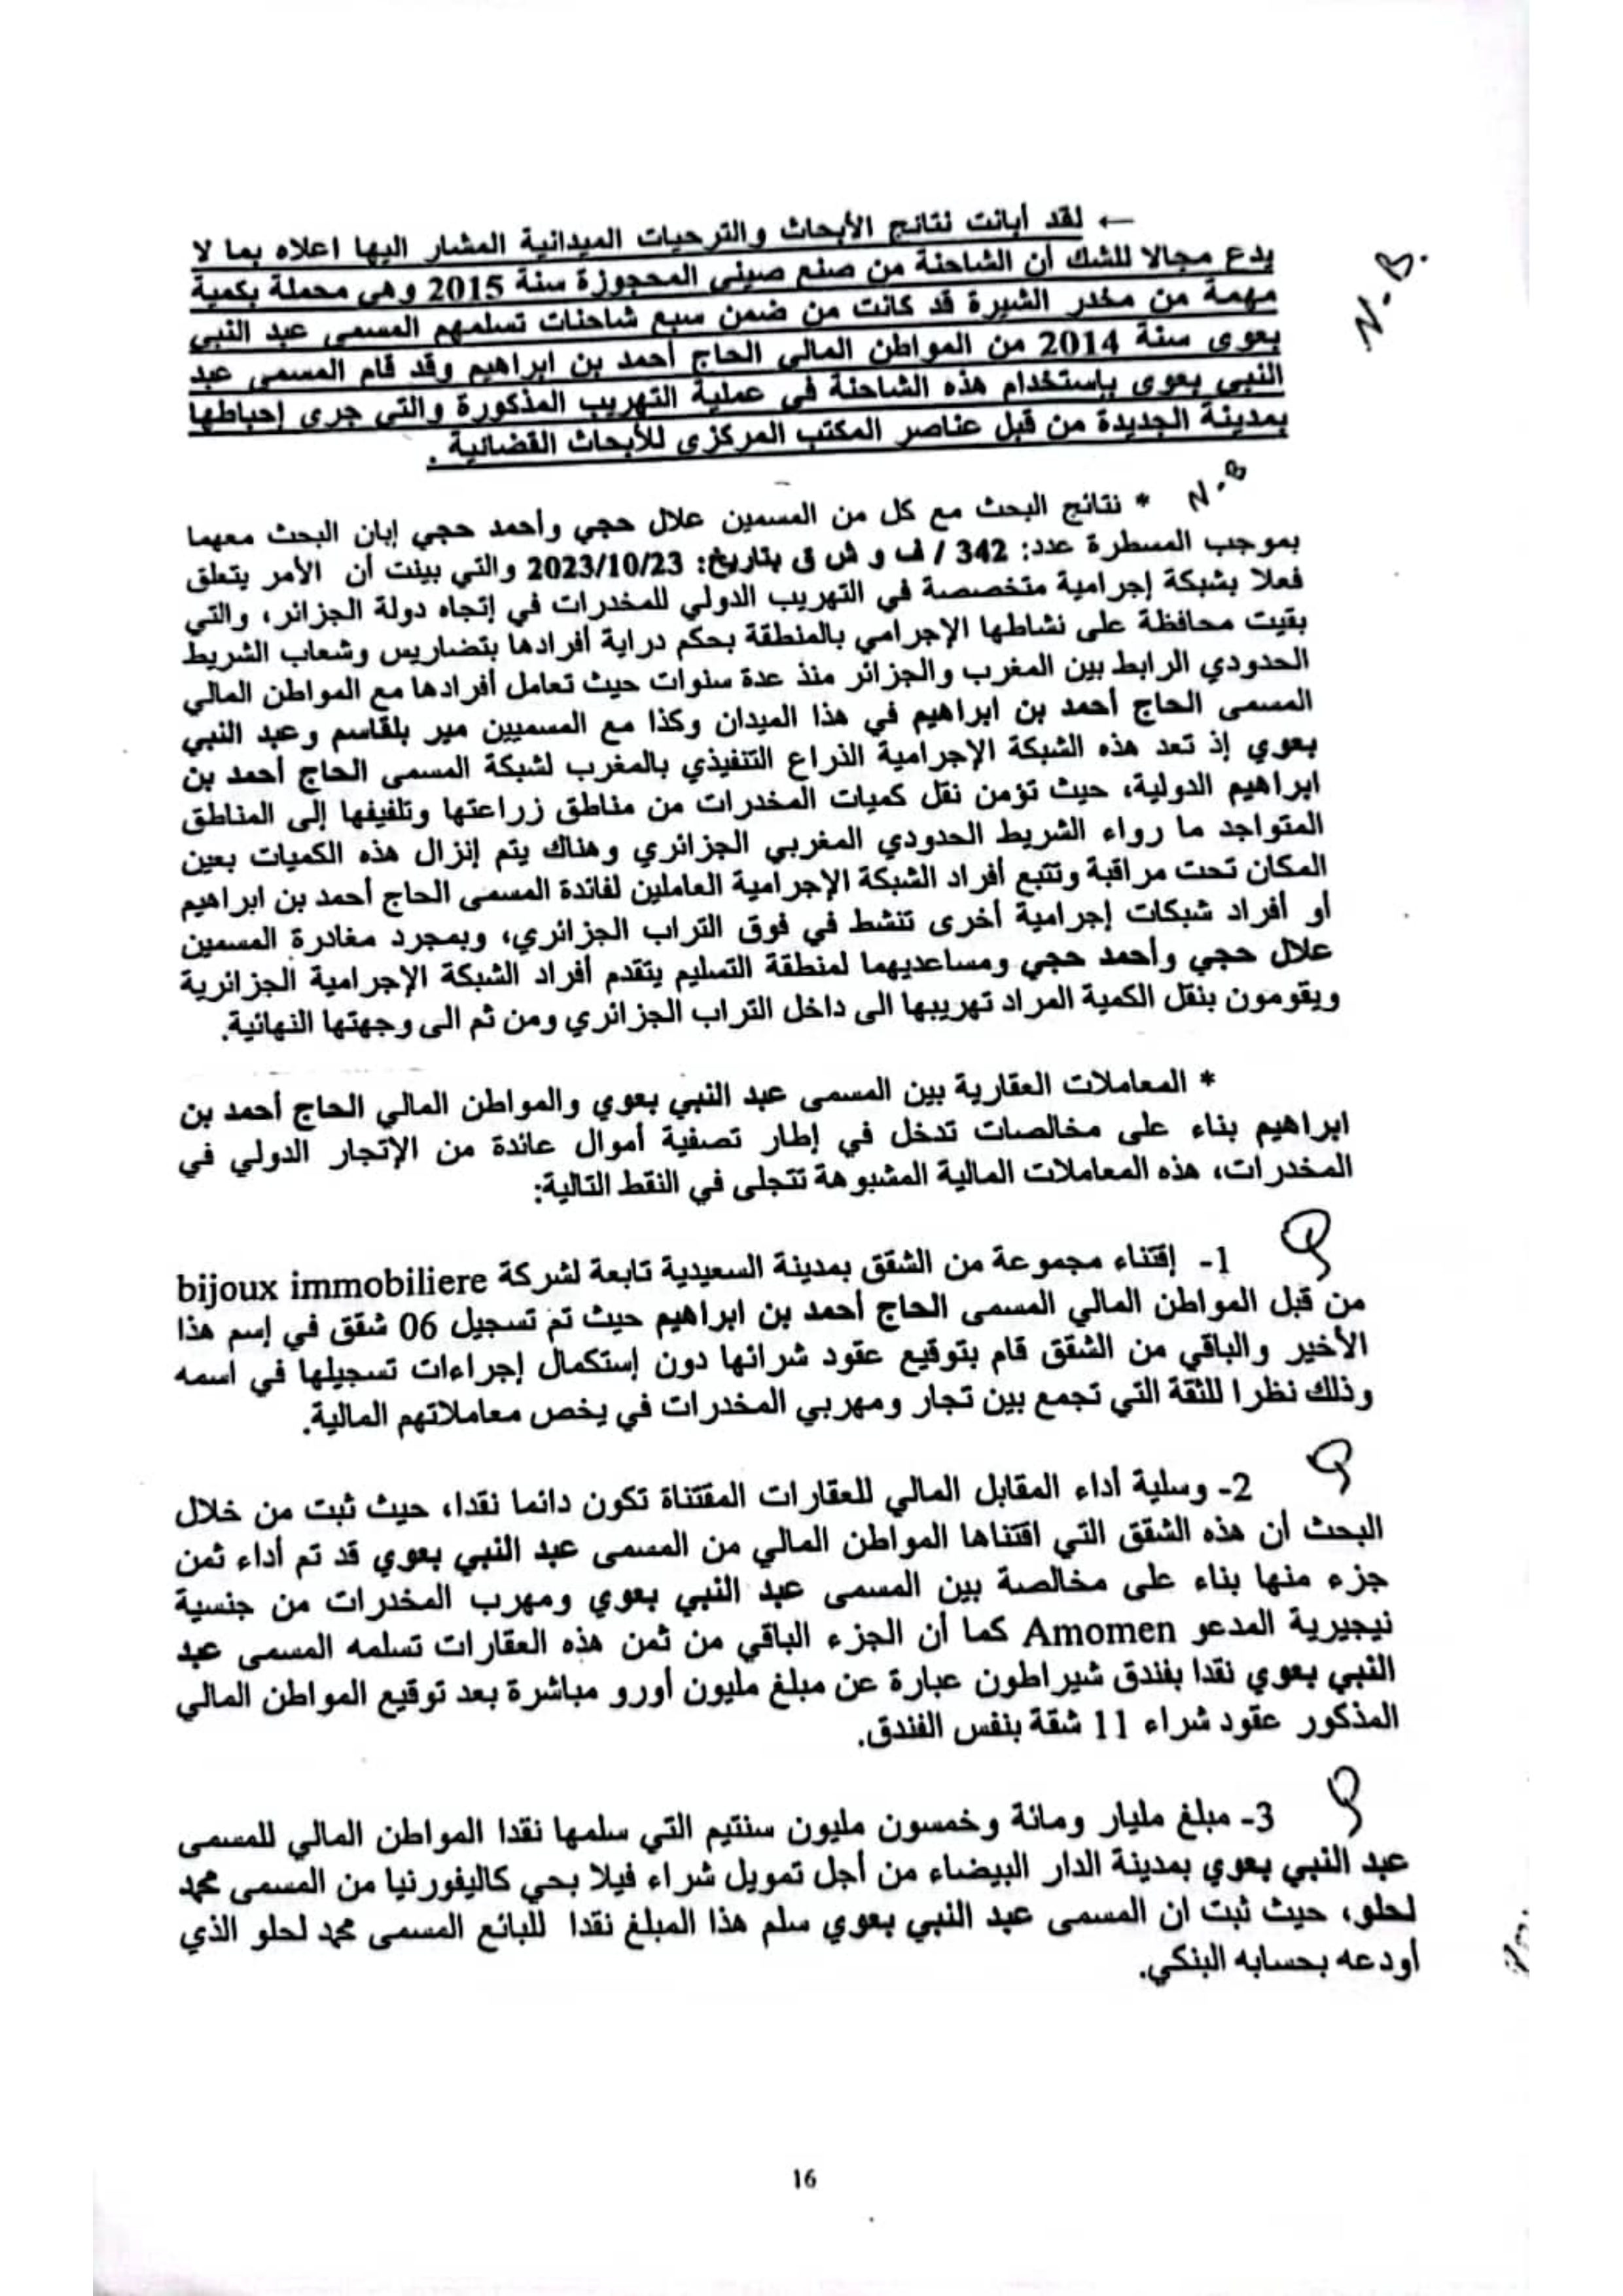 ← لقد أبانت نتائج الأبحاث والترحيات الميدانية المشار اليها اعلاه بما لا
يدع مجالا للشك أن الشاحنة من صنع صيني المحجوزة سنة 2015 وهي محملة بكمية
مهمة من مخدر الشيرة قد كانت من ضمن سبع شاحنات تسلمهم المسمى عبد النبي
بعوي سنة 2014 من المواطن المالي الحاج أحمد بن ابراهيم وقد قام المسمى عبد
النبي بعوي بإستخدام هذه الشاحنة في عملية التهريب المذكورة والتي جرى إحباطها
بمدينة الجديدة من قبل عناصر المكتب المركزي للأبحاث القضائية .
N.B.
N.B
* نتائج البحث مع كل من المسمين علال حجي وأحمد حجي إبان البحث معهما
بموجب المسطرة عدد: 342 / ف و ش ق بتاريخ: 2023/10/23 والتي بينت أن الأمر يتعلق
فعلا بشبكة إجرامية متخصصة في التهريب الدولي للمخدرات في إتجاه دولة الجزائر، والتي
بقيت محافظة على نشاطها الإجرامي بالمنطقة بحكم دراية أفرادها بتضاريس وشعاب الشريط
الحدودي الرابط بين المغرب والجزائر منذ عدة سنوات حيث تعامل أفرادها مع المواطن المالي
المسمى الحاج أحمد بن ابراهيم في هذا الميدان وكذا مع المسميين مير بلقاسم وعبد النبي
بعوي إذ تعد هذه الشبكة الإجرامية الذراع التنفيذي بالمغرب لشبكة المسمى الحاج أحمد بن
ابراهيم الدولية، حيث تؤمن نقل كميات المخدرات من مناطق زراعتها وتلفيفها إلى المناطق
المتواجد ما رواء الشريط الحدودي المغربي الجزائري وهناك يتم إنزال هذه الكميات بعين
المكان تحت مراقبة وتتبع أفراد الشبكة الإجرامية العاملين لفائدة المسمى الحاج أحمد بن ابراهيم
أو أفراد شبكات إجرامية أخرى تنشط في فوق التراب الجزائري، وبمجرد مغادرة المسمين
علال حجي وأحمد حجي ومساعديهما لمنطقة التسليم يتقدم أفراد الشبكة الإجرامية الجزائرية
ويقومون بنقل الكمية المراد تهريبها الى داخل التراب الجزائري ومن ثم الى وجهتها النهائية.
* المعاملات العقارية بين المسمى عبد النبي بعوي والمواطن المالي الحاج أحمد بن
ابراهيم بناء على مخالصات تدخل في إطار تصفية أموال عائدة من الإتجار الدولي في
المخدرات، هذه المعاملات المالية المشبوهة تتجلى في النقط التالية:
1- إقتناء مجموعة من الشقق بمدينة السعيدية تابعة لشركة bijoux immobiliere
من قبل المواطن المالي المسمى الحاج أحمد بن ابراهيم حيث تم تسجيل 06 شقق في إسم هذا
الأخير والباقي من الشقق قام بتوقيع عقود شرائها دون إستكمال إجراءات تسجيلها في اسمه
وذلك نظرا للثقة التي تجمع بين تجار ومهربي المخدرات في يخص معاملاتهم المالية.
2- وسلية أداء المقابل المالي للعقارات المقتناة تكون دائما نقدا، حيث ثبت من خلال
البحث أن هذه الشقق التي اقتناها المواطن المالي من المسمى عبد النبي بعوي قد تم أداء ثمن
جزء منها بناء على مخالصة بين المسمى عبد النبي بعوي ومهرب المخدرات من جنسية
نيجيرية المدعو Amomen كما أن الجزء الباقي من ثمن هذه العقارات تسلمه المسمى عبد
النبي بعوي نقدا بفندق شيراطون عبارة عن مبلغ مليون أورو مباشرة بعد توقيع المواطن المالي
المذكور عقود شراء 11 شقة بنفس الفندق.
3- مبلغ مليار ومائة وخمسون مليون سنتيم التي سلمها نقدا المواطن المالي للمسمى
عبد النبي بعوي بمدينة الدار البيضاء من أجل تمويل شراء فيلا بحي كاليفورنيا من المسمى محمد
لحلو، حيث ثبت ان المسمى عبد النبي بعوي سلم هذا المبلغ نقدا للبائع المسمى محمد لحلو الذي
أودعه بحسابه البنكي.
16